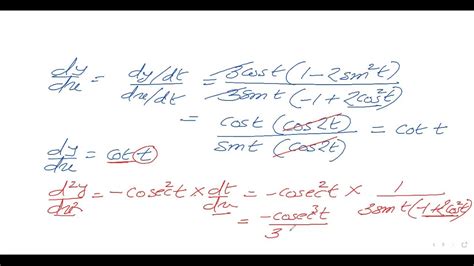 dy/dx = dy/dt / dx/dt = 3cost(1-2sin²t) / 3sint(-1+2cos²t)
= cost(cos2t) / sint(cos2t) = cot t
dy/dx = cot t
d²y/dx² = -cosec²t × dt/dx = -cosec²t × 1 / 3sint(-1+2cos²t)
= -cosec³t / 3